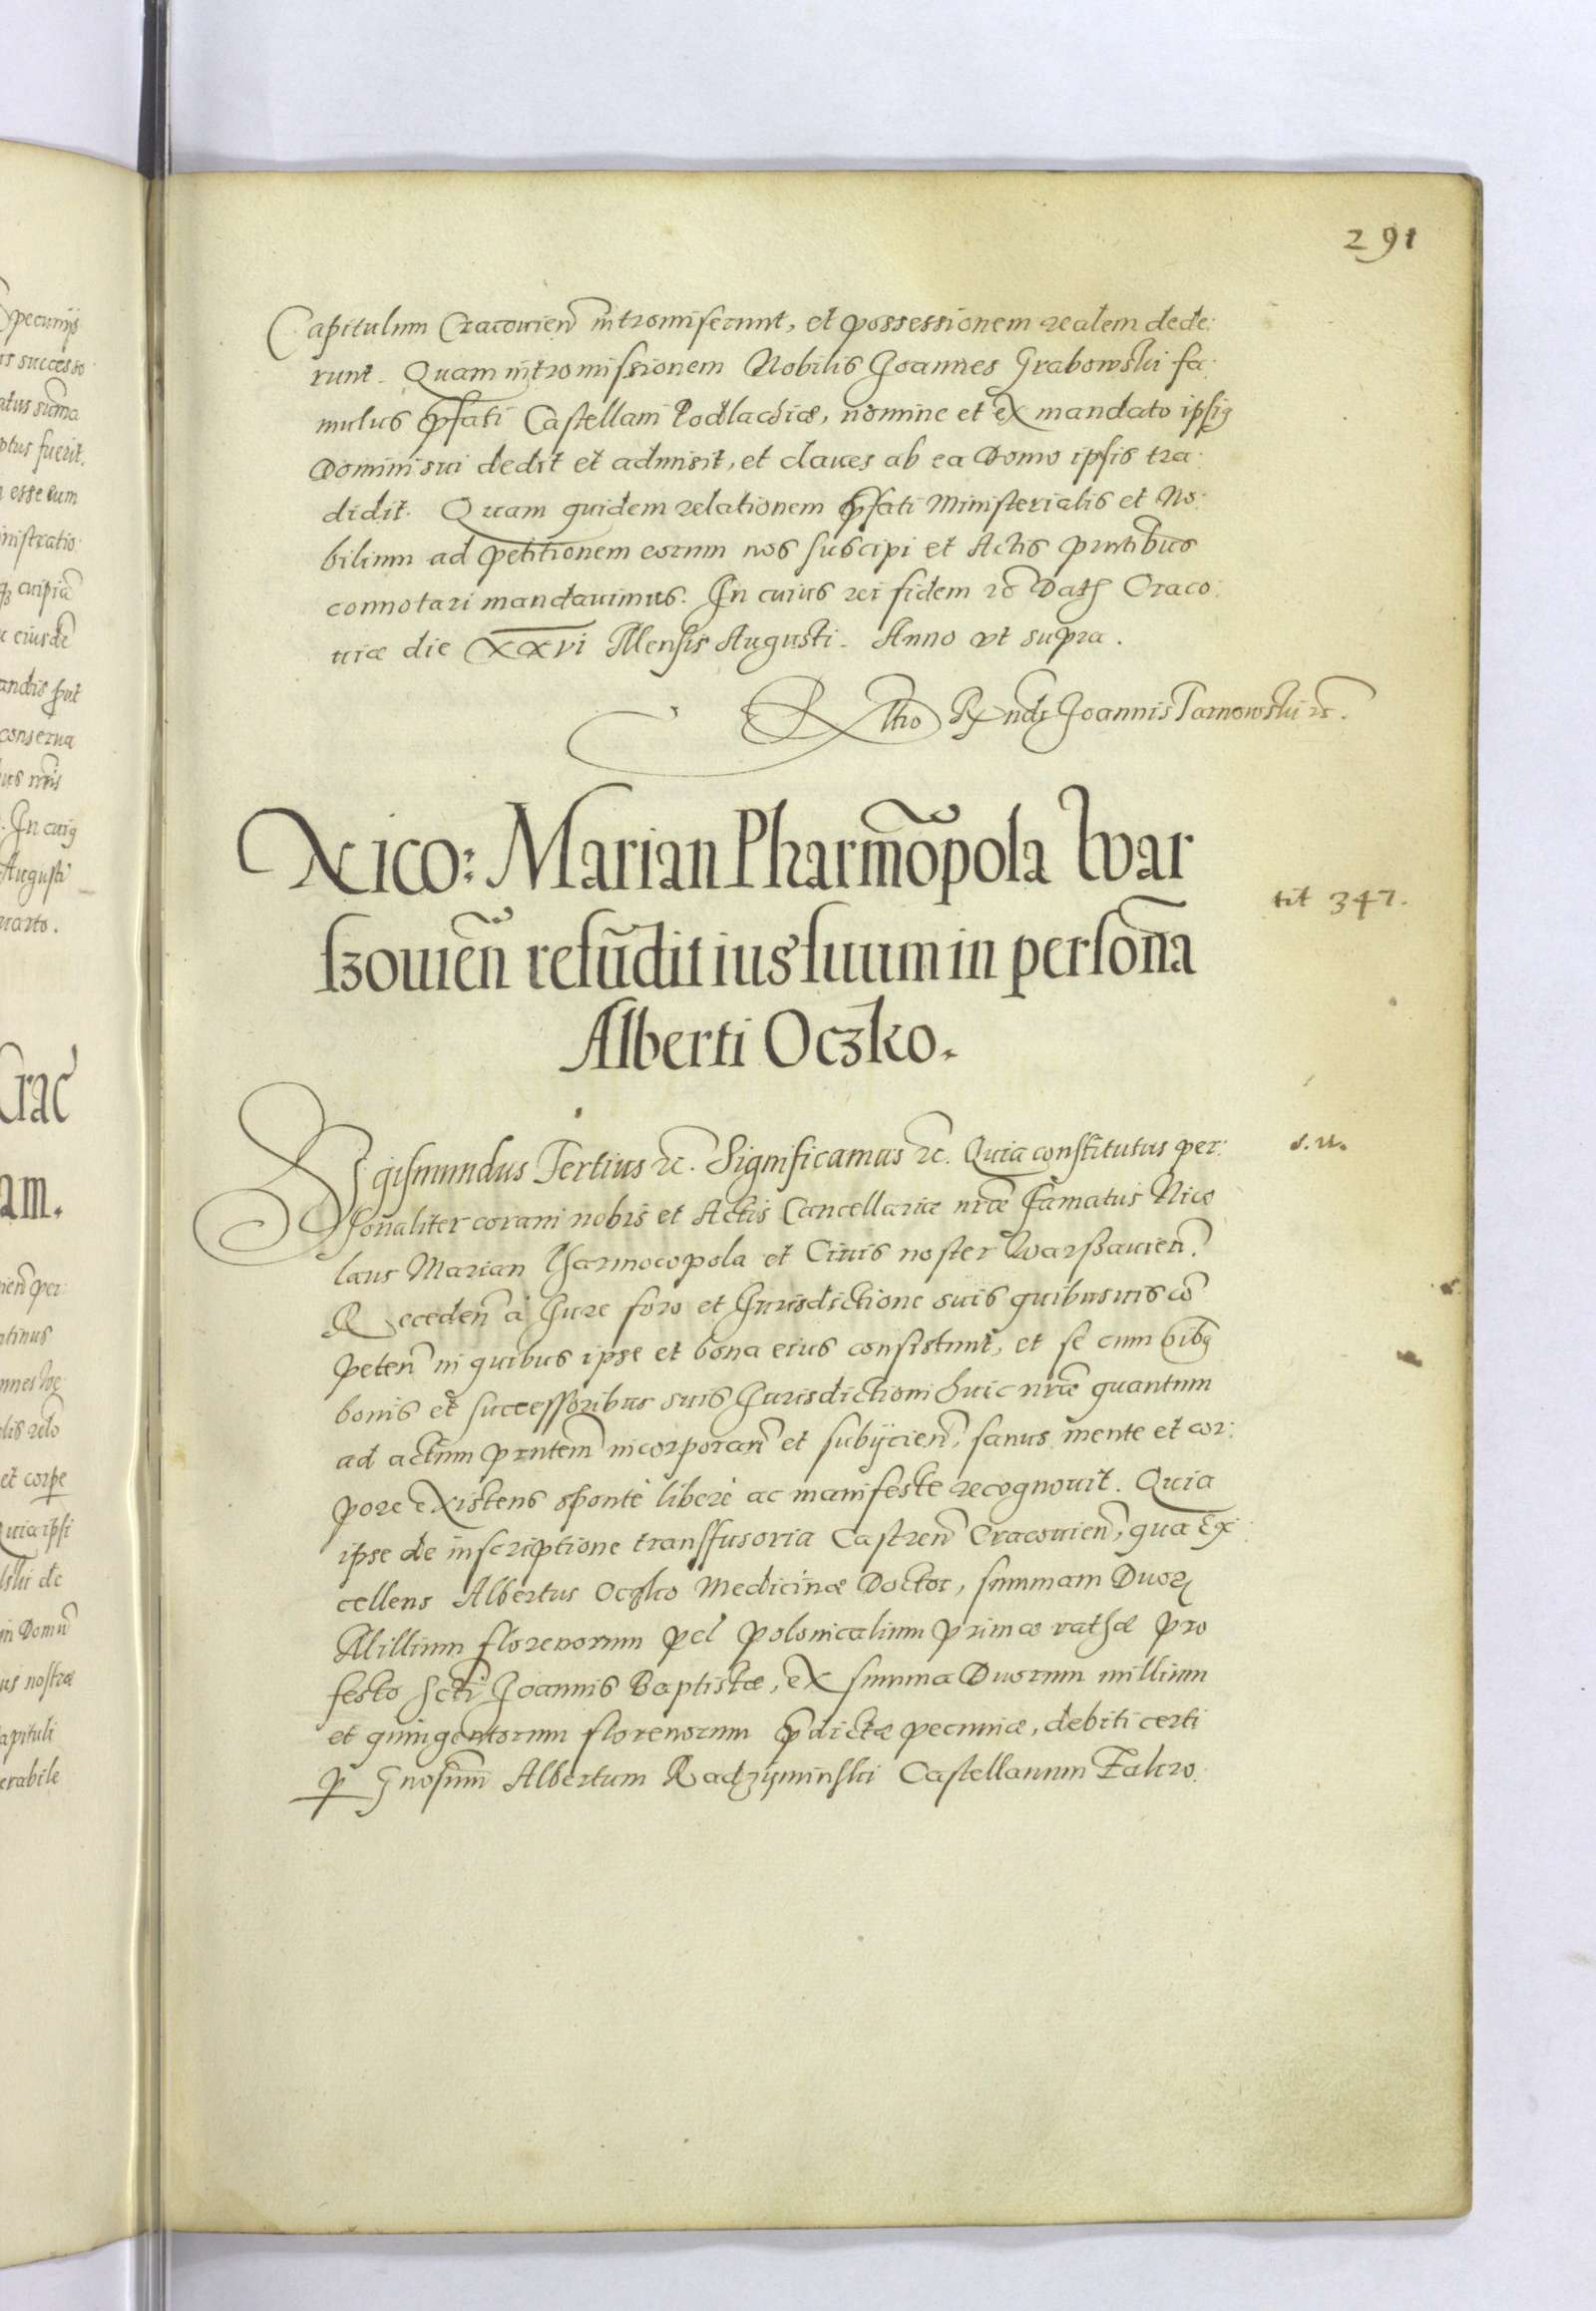 291
Capitulum Cracovien̄ intromiserunt, et possessionem realem dede:
runt. Quam intromissionem Nobilis Joannes Grabowski fa:
mulus p̄fati Castellani Podlachiæ, nomine et ex mandato ipsiꝰ
Domini sui dedit et admisit, et claues ab ea Domo ipsis tra:
didit. Quam quidem relationem p̄fati Ministerialis et No:
bilium ad petitionem eorum nos suscipi et Actis pn̄tibus
connotari mandauimus. In cuius rei fidem ꝛc̄ Datꝭ Craco:
uiæ die XXVI Mensis Augusti. Anno vt supra.
Rl̄tio Rx̄ndi Joannis Tarnowski ꝛc̄.
Nico: Marian Pharmōpola War
szouien̄ refūdit ius suum in persōna
Alberti Oczko.
tit 347.
Sigismundus Tertius ꝛc̄. Significamus ꝛc̄. Quia constitutus per:
s. u.
sonaliter coram nobis et Actis Cancellariæ nr̄æ Famatus Nico
laus Marian Pharmocopola et Ciuis noster Warszauien̄.
Receden̄ à Jure foro et Jurisdictione suis quibusuis cō
peten̄ in quibus ipse et bona eius consistunt, et se cum oībꝰ
bonis et successoribus suis Jurisdictioni huic nr̄æ quantum
ad actum pn̄tem incorporan̄ et subijcien̄, sanus mente et cor:
pore existens spontè liberè ac manifeste recognouit. Quia
ipse de inscriptione transfusoria Castren̄ Cracouien̄, qua Ex:
cellens Albertus Oczko Medicinæ Doctor, summam Duorꝝ
Millium florenorum pel̄ polonicalium primæ rathæ pro
festo Sct̄i Joannis Baptistæ, ex summa Duorum millium
et quingentorum florenorum p̄dictæ pecuniæ, debiti certi
ꝑ Gnosum̄ Albertum Radzyminski Castellanum Zakro: